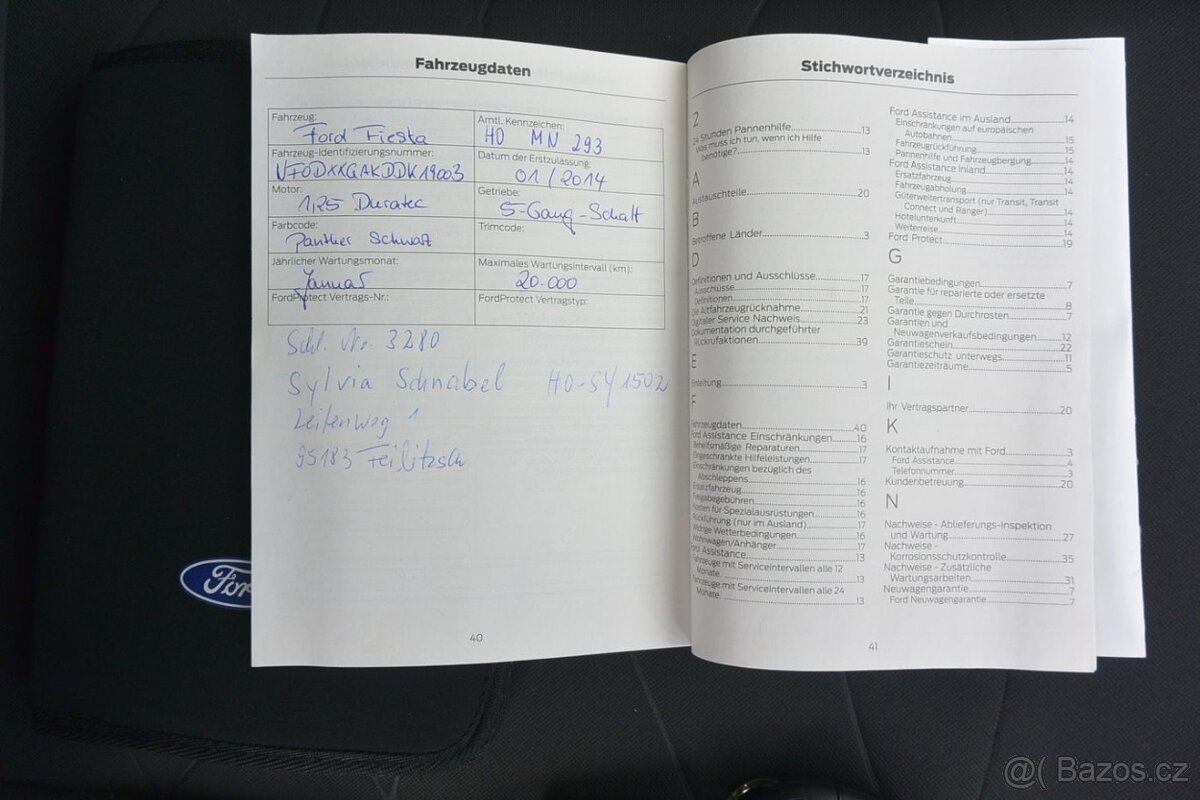 Fahrzeugdaten
Fahrzeug:
Ford Fiesta
Amtl. Kennzeichen:
HO MN 293
Fahrzeug-Identifizierungsnummer:
VF0DXXGAKDDK19003
Datum der Erstzulassung:
01/2014
Motor:
1,25 Duratec
Getriebe:
5-Gang-Schalt
Farbcode:
Panther Schwarz
Trimcode:
Jährlicher Wartungsmonat:
Januar
Maximales Wartungsintervall (km):
20.000
FordProtect Vertrags-Nr.:
FordProtect Vertragstyp:
Schl. Nr. 3280
Sylvia Schnabel HO-SY1502
Leitenweg 1
95183 Feilitzsch
40
Stichwortverzeichnis
2
24 Stunden Pannenhilfe 13
Was muss ich tun, wenn ich Hilfe
benötige? 13
A
Austauschteile 20
B
Betroffene Länder 3
D
Definitionen und Ausschlüsse 17
Ausschlüsse 17
Definitionen 17
Die Altfahrzeugrücknahme 21
Digitaler Service Nachweis 23
Dokumentation durchgeführter
Rückrufaktionen 39
E
Einleitung 3
F
Fahrzeugdaten 40
Ford Assistance Einschränkungen 16
Behelfsmäßige Reparaturen 17
Eingeschränkte Hilfeleistungen 17
Einschränkungen bezüglich des
Abschleppens 16
Ersatzfahrzeug 16
Freigabegebühren 16
Kosten für Spezialausrüstungen 16
Rückführung (nur im Ausland) 17
Widrige Wetterbedingungen 16
Wohnwagen/Anhänger 17
Ford Assistance 13
Fahrzeuge mit Serviceintervallen alle 12
Monate 13
Fahrzeuge mit Serviceintervallen alle 24
Monate 13
Ford Assistance im Ausland 14
Einschränkungen auf europäischen
Autobahnen 15
Fahrzeugrückführung 15
Pannenhilfe und Fahrzeugbergung 14
Ford Assistance Inland 14
Ersatzfahrzeug 14
Fahrzeugabholung 14
Güterweitertransport (nur Transit, Transit
Connect und Ranger) 14
Hotelunterkunft 14
Weiterreise 14
Ford Protect 19
G
Garantiebedingungen 7
Garantie für reparierte oder ersetzte
Teile 8
Garantie gegen Durchrosten 7
Garantien und
Neuwagenverkaufsbedingungen 12
Garantieschein 22
Garantieschutz unterwegs 11
Garantiezeiträume 5
I
Ihr Vertragspartner 20
K
Kontaktaufnahme mit Ford 3
Ford Assistance 4
Telefonnummer 3
Kundenbetreuung 20
N
Nachweise - Ablieferungs-Inspektion
und Wartung 27
Nachweise -
Korrosionsschutzkontrolle 35
Nachweise - Zusätzliche
Wartungsarbeiten 31
Neuwagengarantie 7
Ford Neuwagengarantie 7
41
Ford
@( Bazos.cz